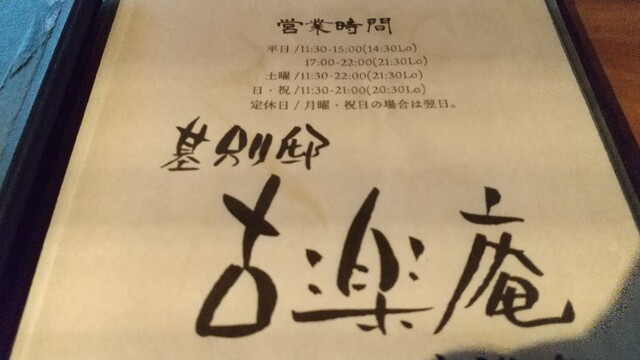 営業時間
平日/11:30-15:00(14:30Lo)
17:00-22:00(21:30Lo)
土曜/11:30-22:00(21:30Lo)
日・祝/11:30-21:00(20:30Lo)
定休日/月曜・祝日の場合は翌日。
基別邸
古楽庵